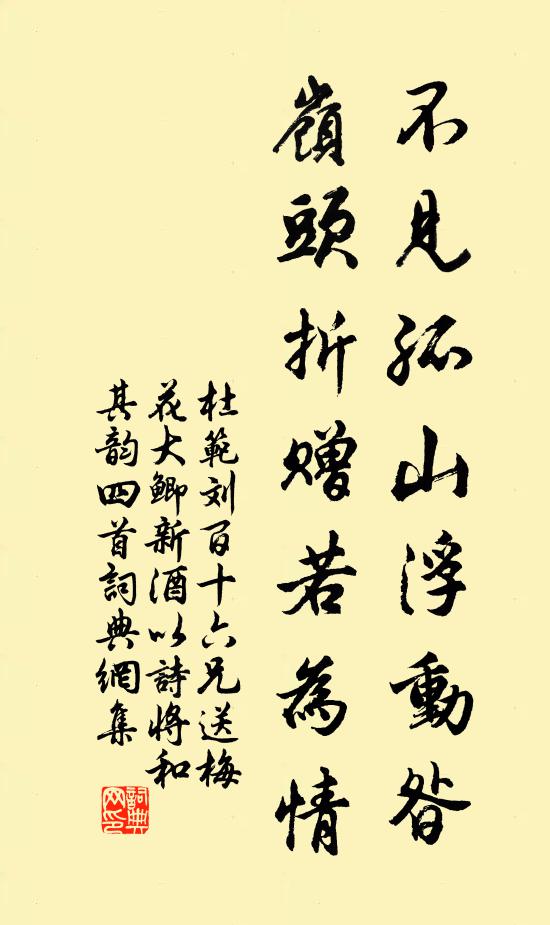 不見孤山浮動昝
嶺頭折贈若為情
杜範刘百十六兄送梅
花大鲫新酒以詩将和
其韵四首詞典網集
詞典
网印